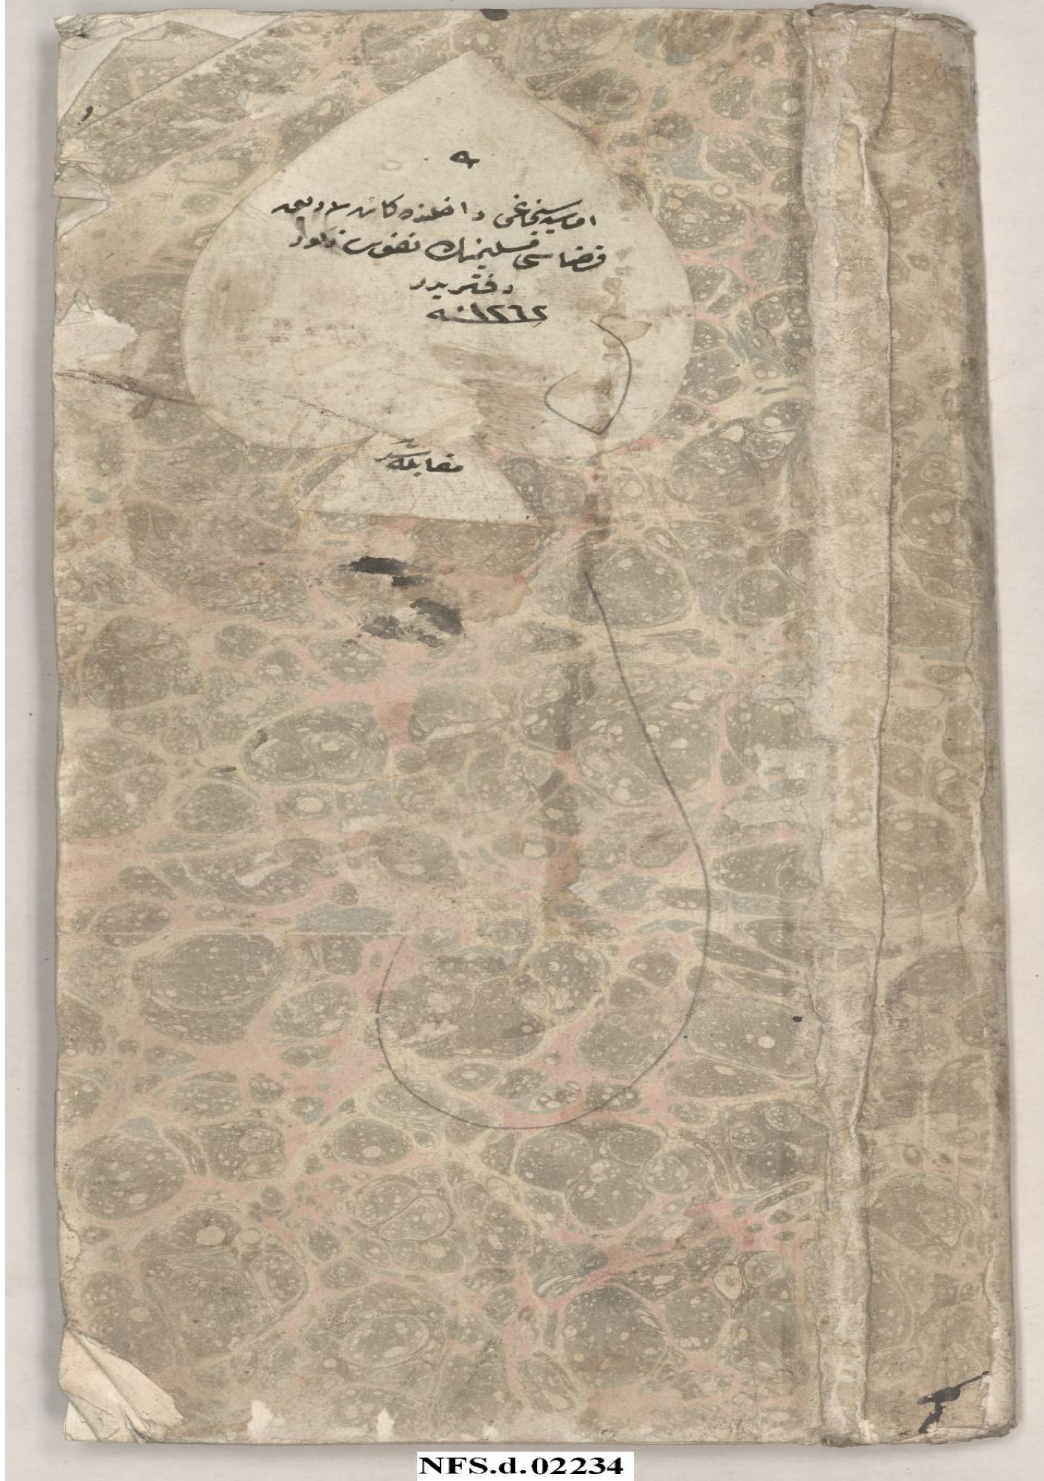 ٩
اماسيه سنجاغى داخلنده كائن لاديق
قضاسى مسلمينك نفوس
دفتريدر
سنه ١٢٦٢
مقابله شد
NFS.d.02234